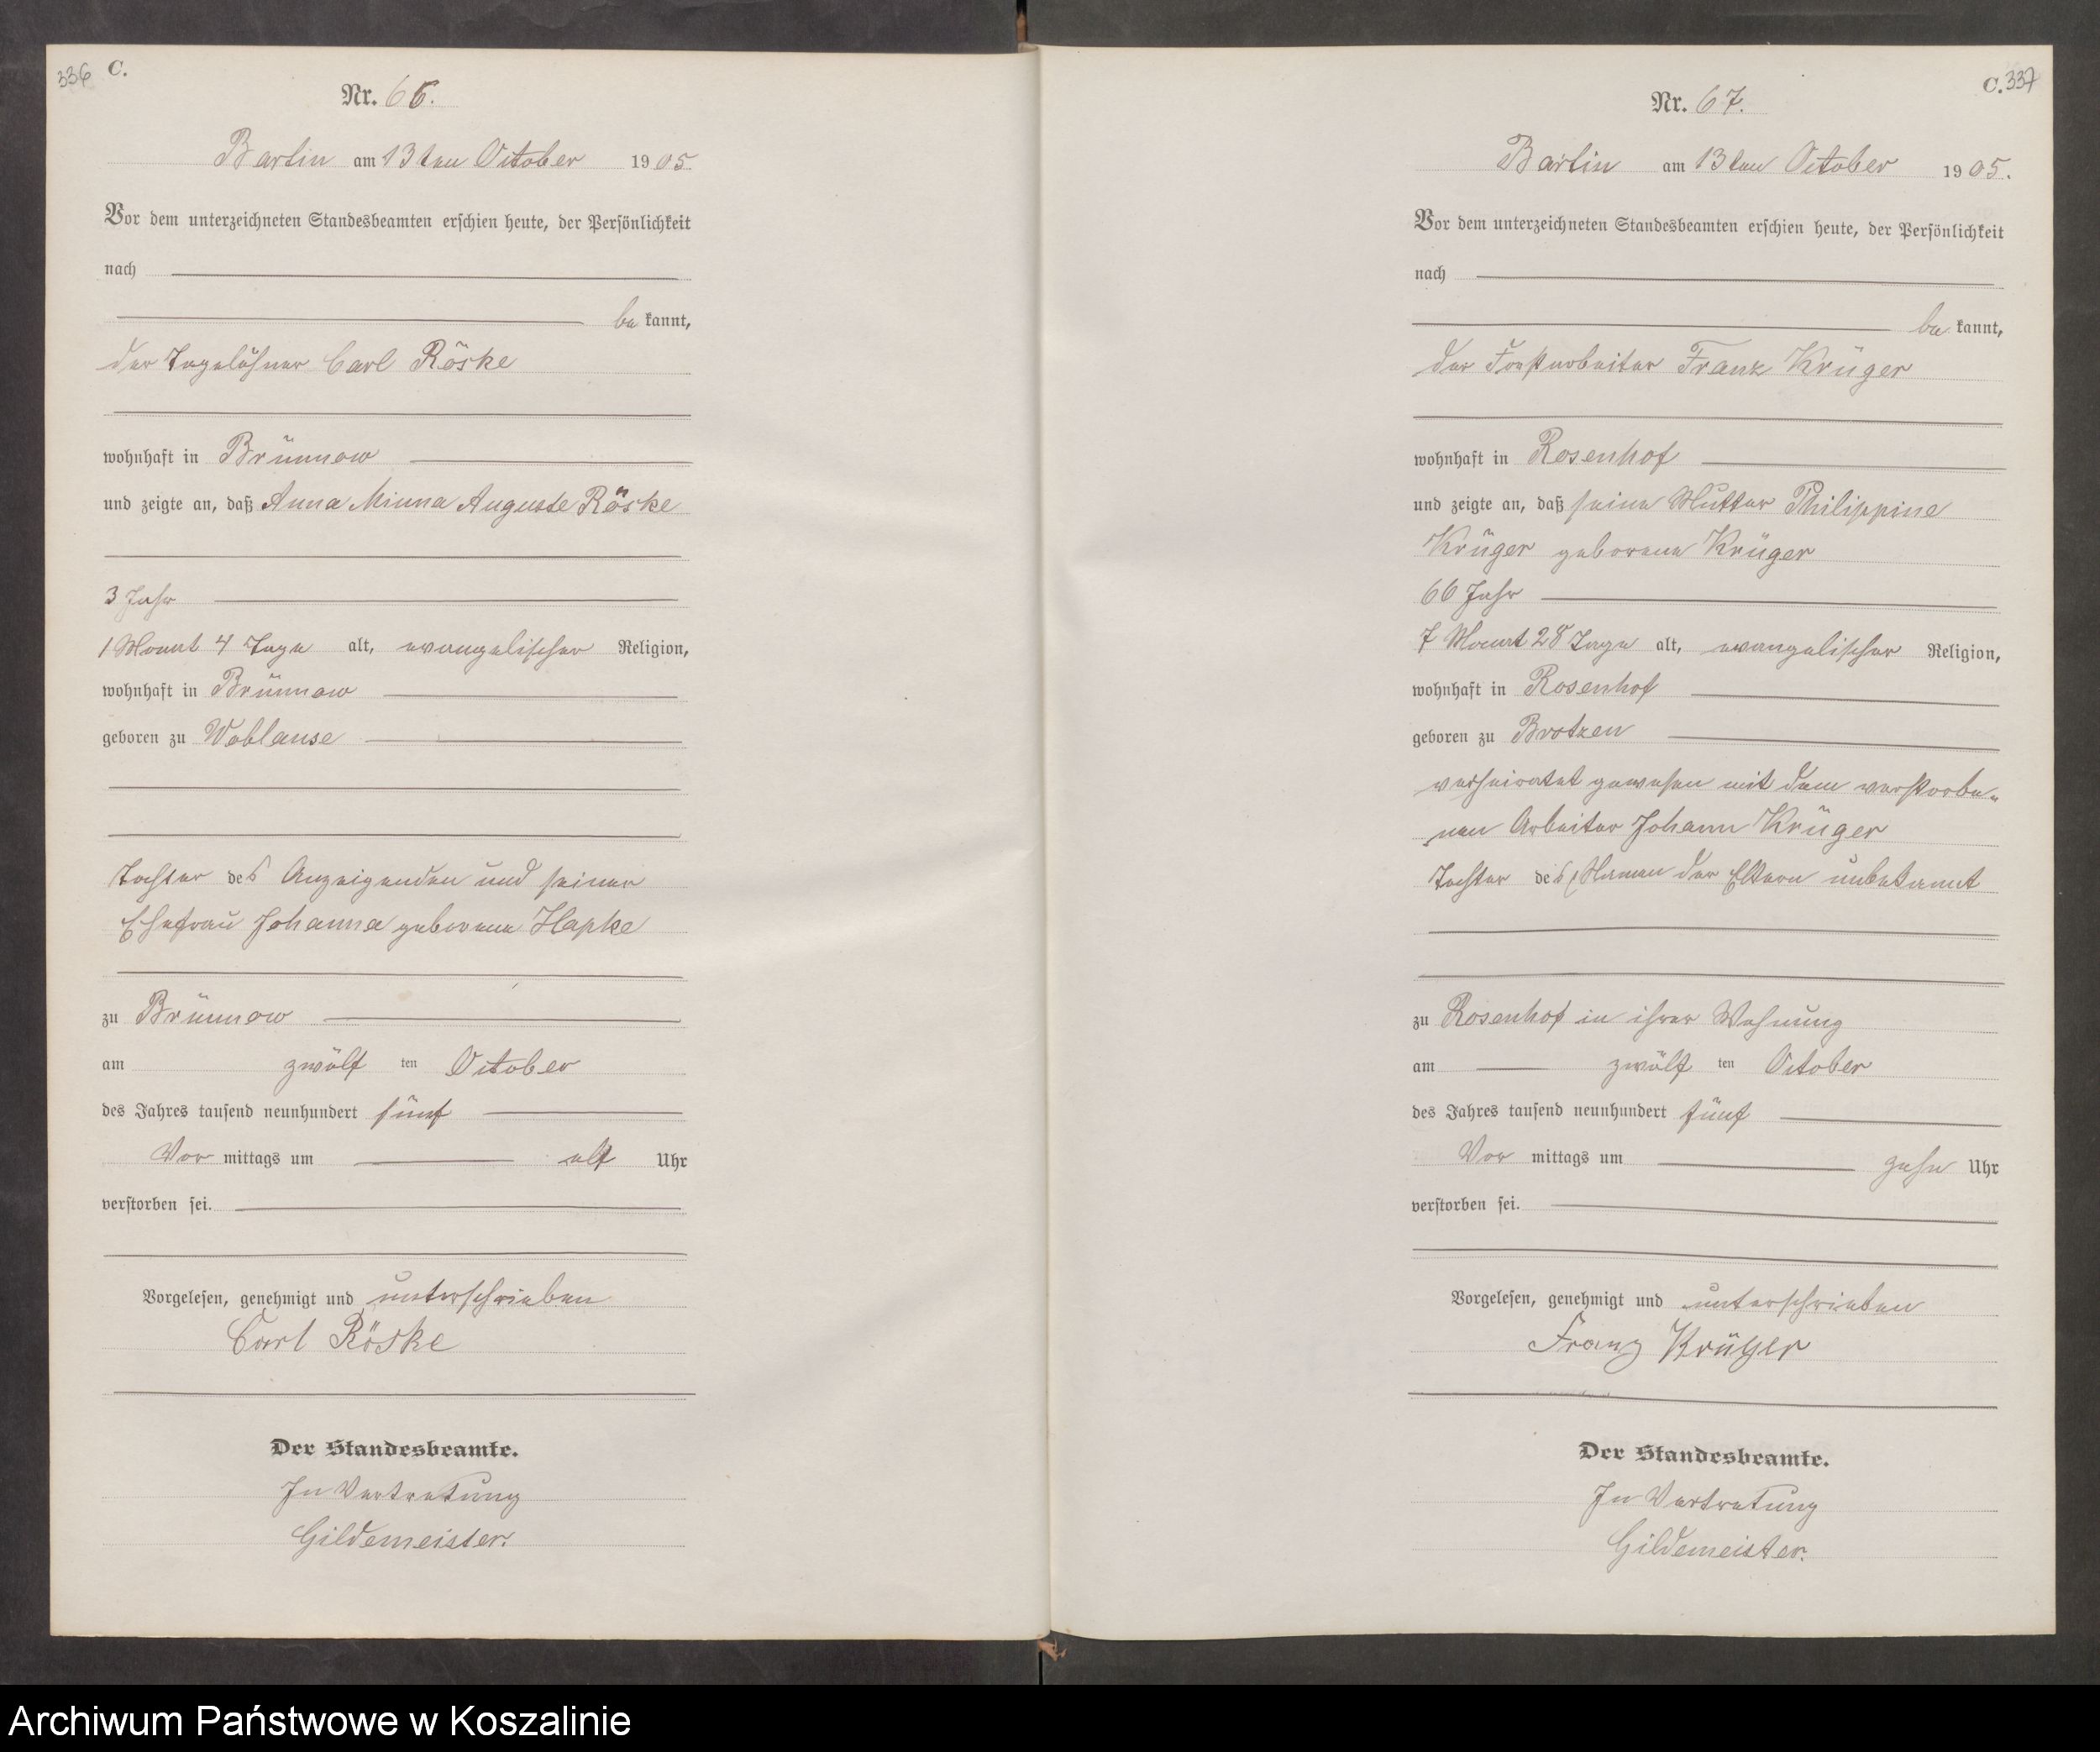 336 C.
Nr. 66.
Bartin am 13ten October 1905.
Vor dem unterzeichneten Standesbeamten erschien heute, der Persönlichkeit
nach
be kannt,
der Tagelöhner Carl Röske
wohnhaft in Brünnow
und zeigte an, daß Anna Minna Auguste Röske
3 Jahr
1 Monat 4 Tage alt, evangelischer Religion,
wohnhaft in Brünnow
geboren zu Woblanse
Tochter des Anzeigenden und seiner
Ehefrau Johanna geborene Hapke
zu Brünnow
am zwölf ten October
des Jahres tausend neunhundert fünf
Vor mittags um elf Uhr
verstorben sei.
Vorgelesen, genehmigt und unterschrieben
Carl Röske
Der Standesbeamte.
In Vertretung
Gildemeister.
C. 337
Nr. 67.
Bartin am 13ten October 1905.
Vor dem unterzeichneten Standesbeamten erschien heute, der Persönlichkeit
nach
be kannt,
der Forstarbeiter Franz Krüger
wohnhaft in Rosenhof
und zeigte an, daß seine Mutter Philippine
Krüger geborene Krüger
66 Jahr
7 Monat 28 Tage alt, evangelischer Religion,
wohnhaft in Rosenhof
geboren zu Brotzen
verheiratet gewesen mit dem verstorbe-
nen Arbeiter Johann Krüger
Tochter des (Namen der Eltern unbekannt
zu Rosenhof in ihrer Wohnung
am zwölf ten October
des Jahres tausend neunhundert fünf
Vor mittags um zehn Uhr
verstorben sei.
Vorgelesen, genehmigt und unterschrieben
Franz Krüger
Der Standesbeamte.
In Vertretung
Gildemeister.
Archiwum Państwowe w Koszalinie